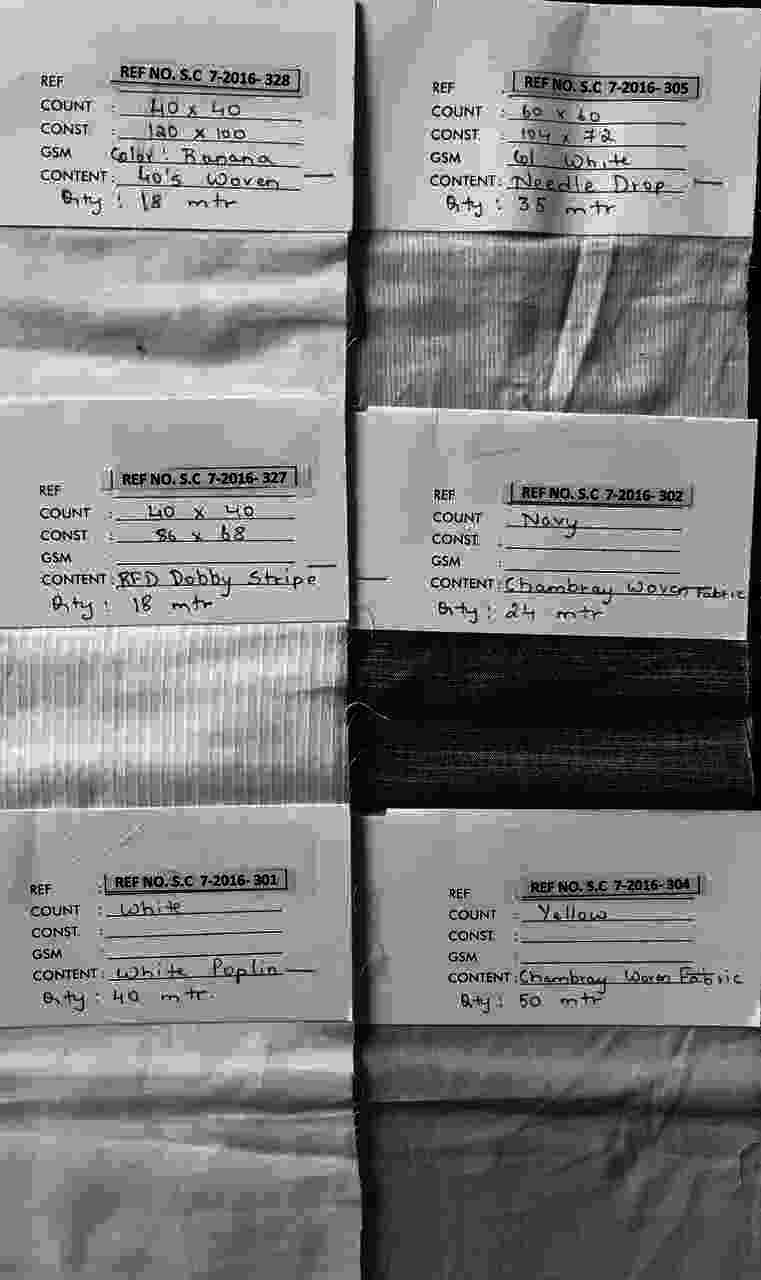 REF REF NO. S.C 7-2016- 328
COUNT : 40 x 40
CONST. : 120 x 100
GSM Color : Banana
CONTENT : 40's Woven
Qty : 18 mtr
REF : REF NO. S.C 7-2016- 305
COUNT : 60 x 60
CONST. : 104 x 72
GSM Col : White
CONTENT : Needle Drop
Qty : 35 mtr
REF REF NO. S.C 7-2016- 327
COUNT : 40 x 40
CONST. : 86 x 68
GSM
CONTENT : RFD Dobby Stripe
Qty : 18 mtr
REF REF NO. S.C 7-2016- 302
COUNT : Navy
CONST. :
GSM :
CONTENT : Chambray Woven Fabric
Qty : 24 mtr
REF : REF NO. S.C 7-2016- 301
COUNT : White
CONST. :
GSM :
CONTENT : White Poplin
Qty : 40 mtr.
REF : REF NO. S.C 7-2016- 304
COUNT : Yellow
CONST. :
GSM :
CONTENT : Chambray Woven Fabric
Qty : 50 mtr